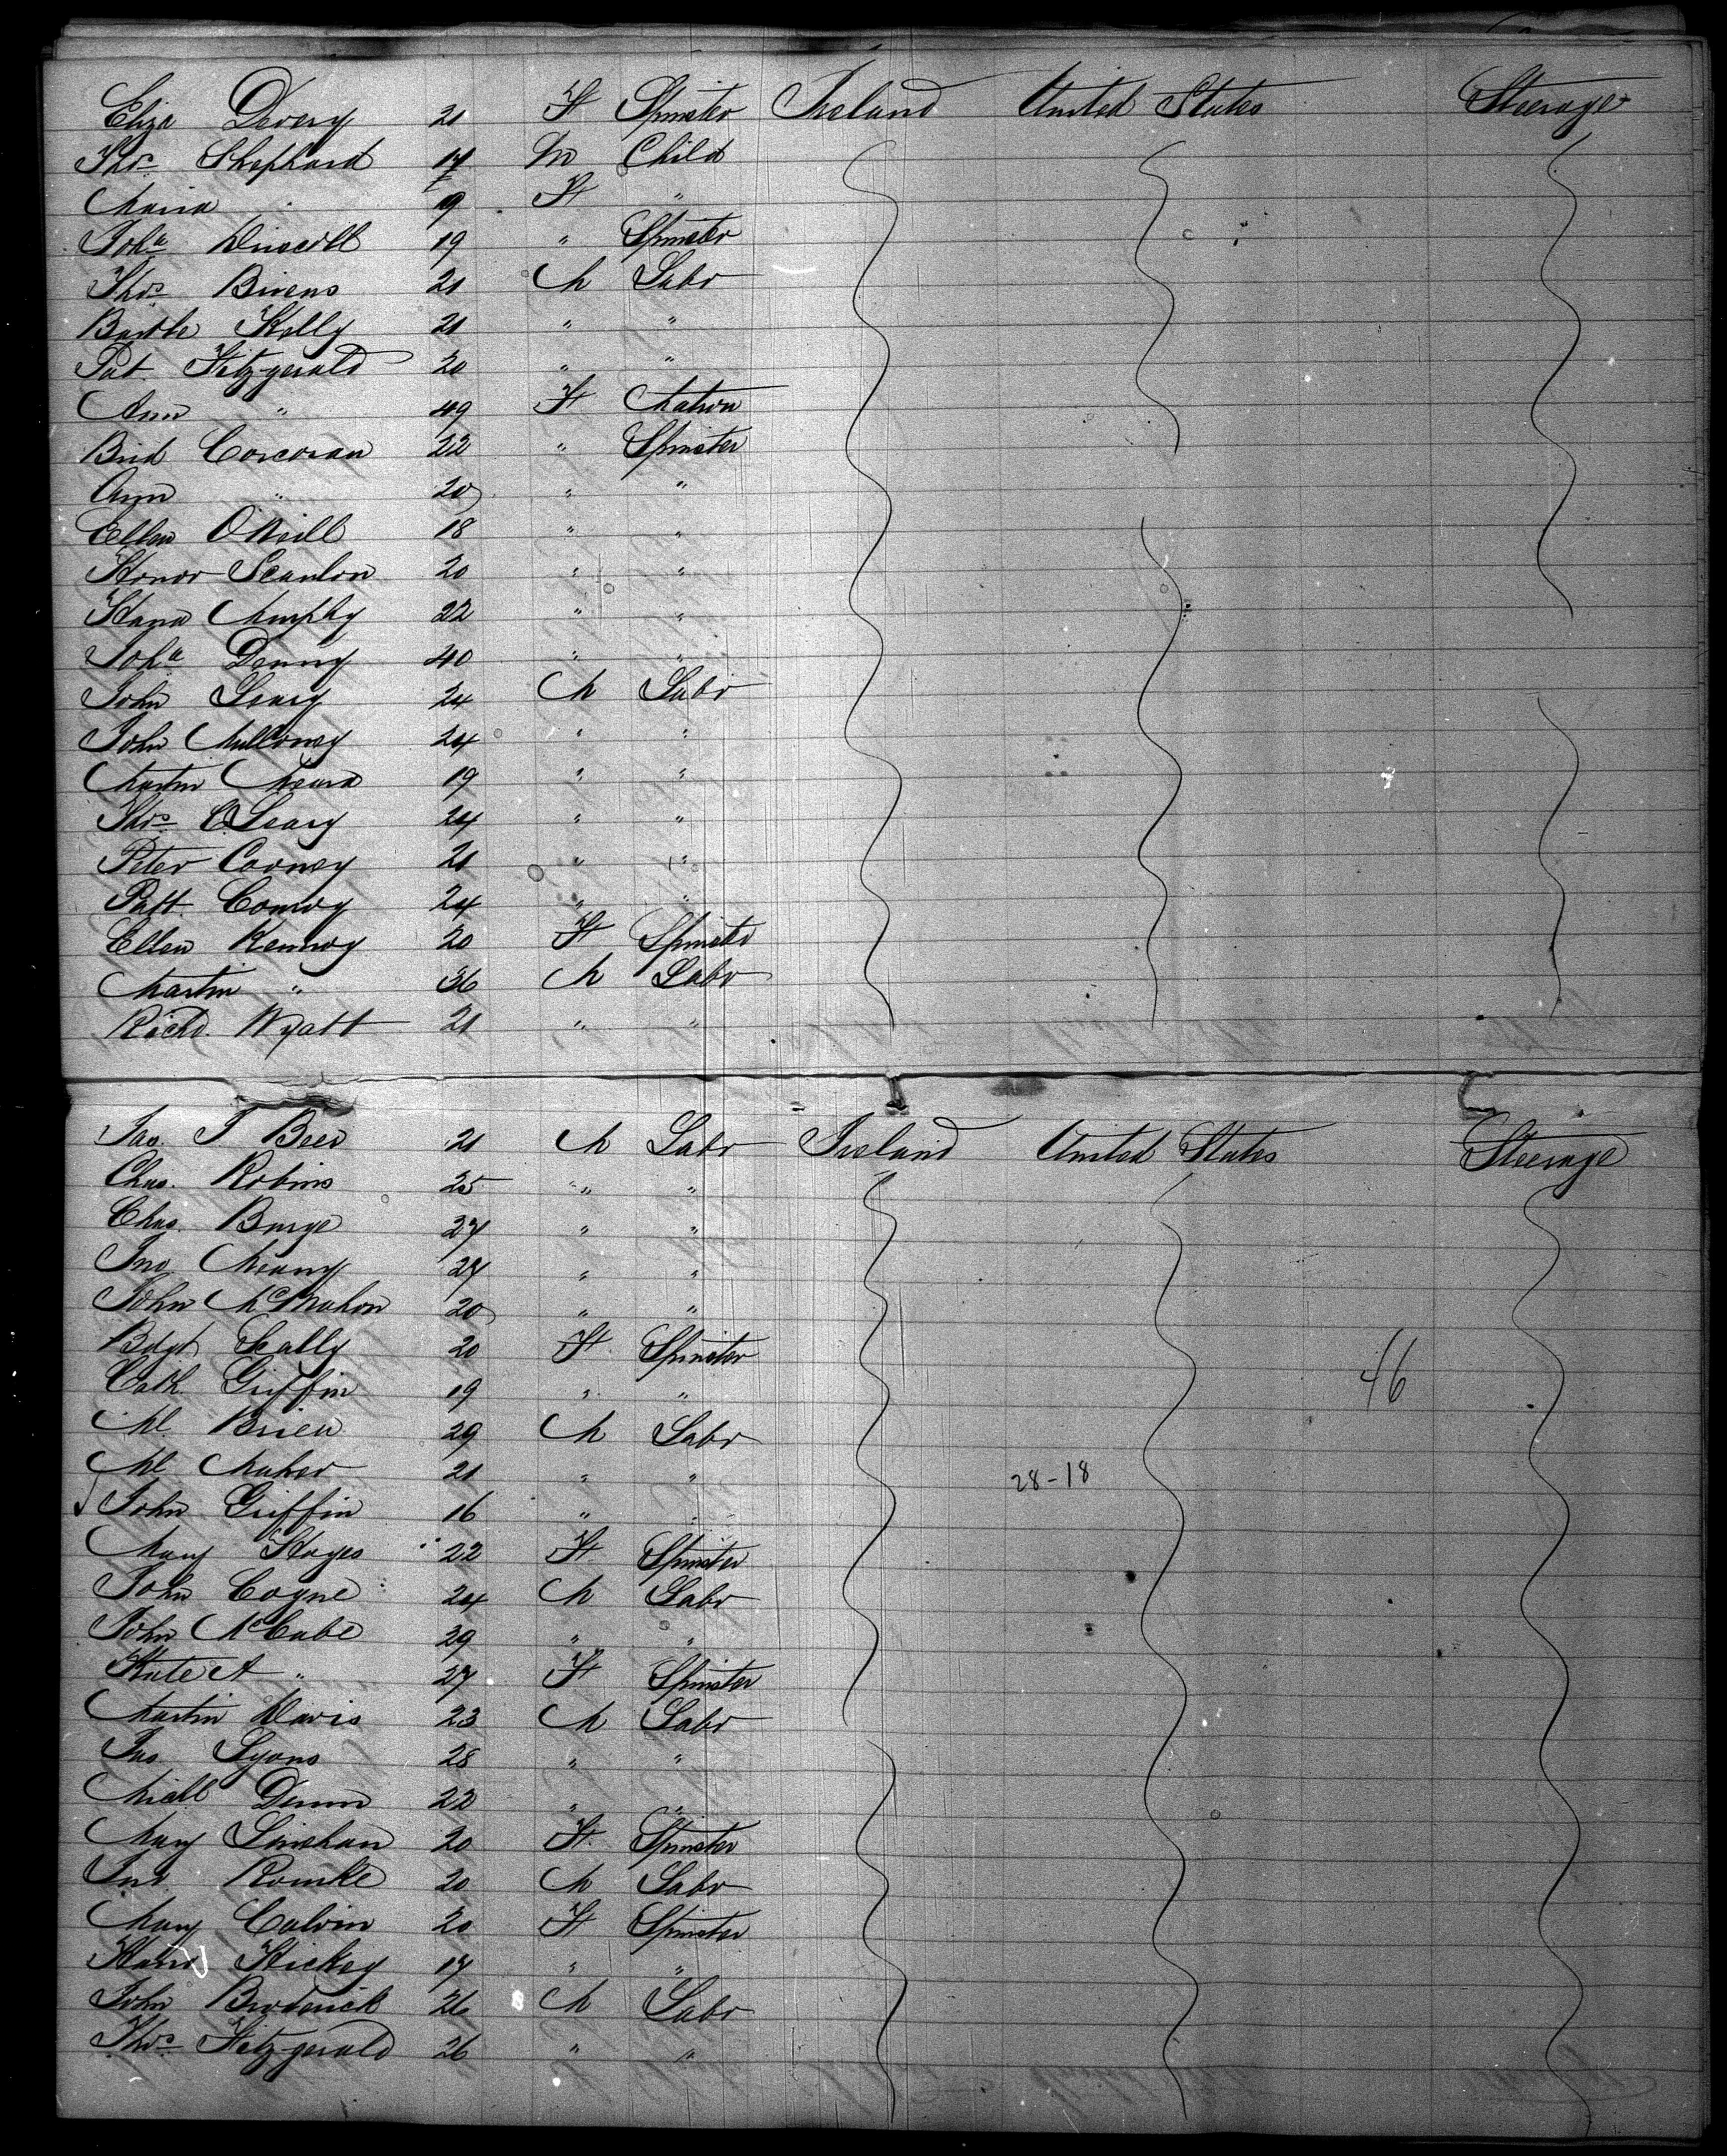 Eliza Devery 21 F Spinster Ireland United States Steerage
Thos Shephard 17 M Child
Maria 9 F "
Joha Driscoll 19 " Spinster
Thos Bivens 21 M Labr
Bartle Kelly 21 " "
Pat. Fitzgerald 20 " "
Ann " 49 F Matron
Brid Corcoran 22 " Spinster
Ann " 20 " "
Ellen O'Neill 18 " "
Honor Scanlon 20 " "
Hana Murphy 22 " "
Joha Denny 40 " "
John Leary 24 M Labr
John Mulloney 24 " "
Martin Meara 19 " "
Thos O'Leary 24 " "
Peter Cooney 21 " "
Patt. Conroy 24 " "
Ellen Kenroy 20 F Spinster
Martin " 36 M Labr
Richd. Wyatt 21 " "
Jas. T Beer 21 M Labr Ireland United States Steerage
Chas. Robins 25 " "
Chas. Burge 27 " "
Jno Meany 27 " "
John McMahon 20 " "
Bdgt Scally 20 F Spinster
46
Cath. Griffin 19 " "
Ml Brien 29 M Labr
Ml Maher 21 " " 28-18
John Griffin 16 " "
Mary Hayes 22 F Spinster
John Coyne 24 M Labr
John McCabe 29 " "
Kate A " 27 F Spinster
Martin Davis 23 M Labr
Jas Lyons 28 " "
Michl Dunn 22 " "
Mary Linehan 20 F Spinster
Jno Rourke 20 M Labr
Mary Calvin 20 F Spinster
Hickey 17 " "
John Broderick 26 M Labr
Thos Fitzgerald 26 " "